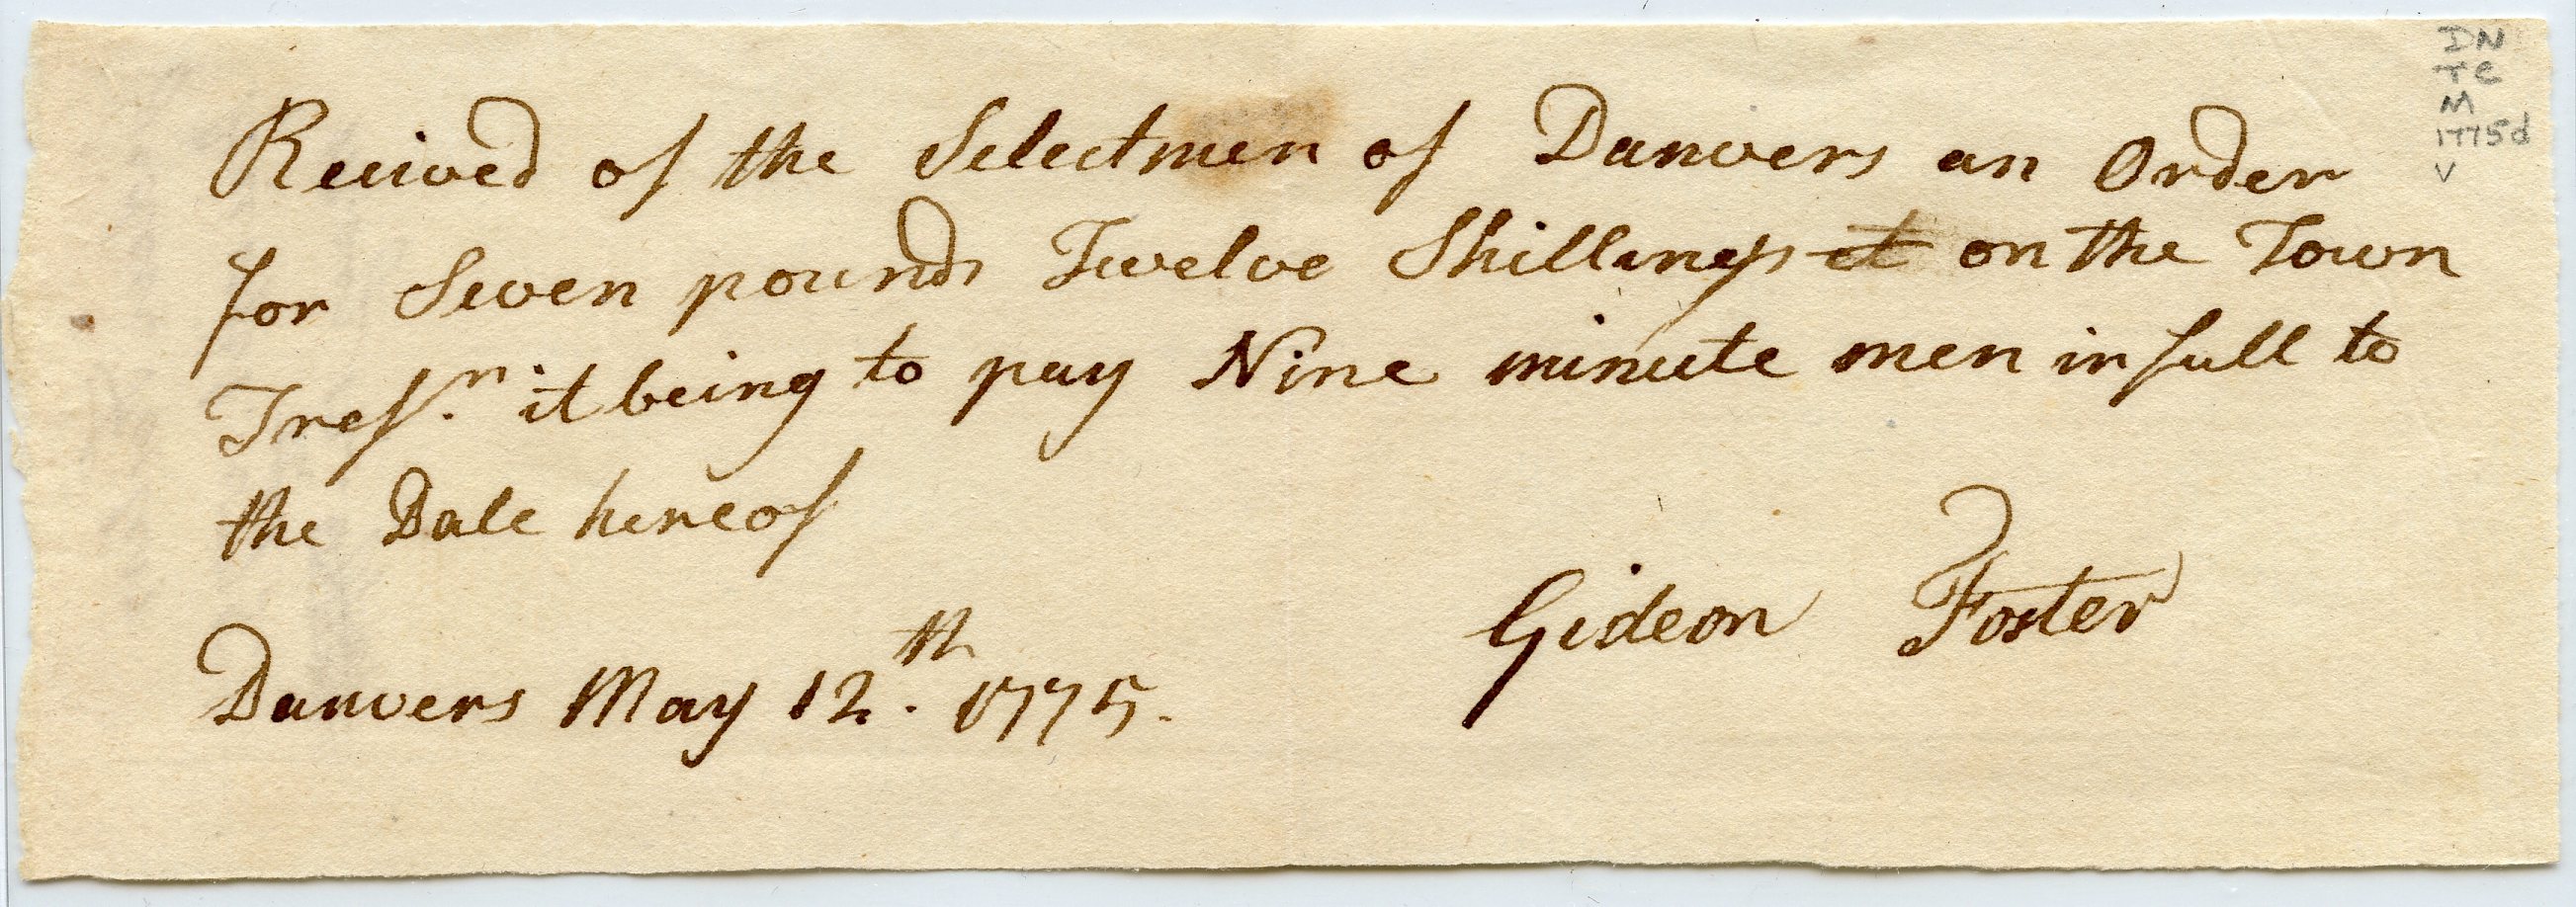 Recived of the Selectmen of Danvers an Order
for Seven pounds Twelve Shillings it on the Town
Tresr. it being to pay Nine minute men in full to
the Date hereof
Gideon Foster
Danvers May 12.th 1775.
DN
TC
M
1775d
V